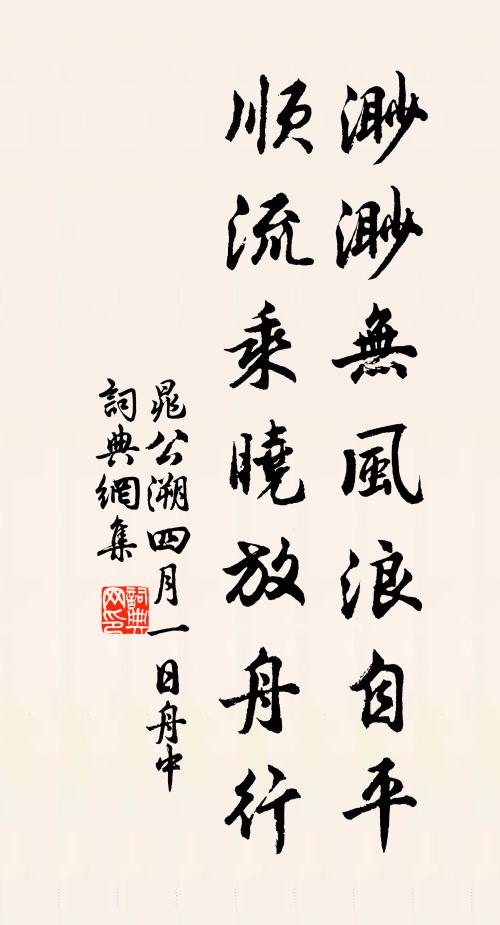 渺渺無風浪自平
順流乘曉放舟行
晁公溯四月一日舟中
詞典網集
詞典
网印